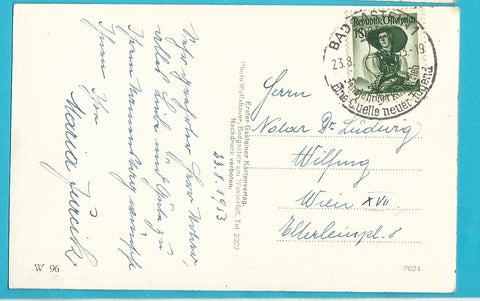 Sehr geehrter Herr Notar,
alles Liebe und Gute zu
Ihrem Namenstag wünscht
Ihnen
Maria Jurcik
23.8.1953
Erster Gasteiner Kartenverlag.
Photo Wolfsbauer, Badgastein am Wasserfall, Tel. 2307
Nachdruck verboten.
W 96
Republik Österreich
BADGASTEIN 1
23.8.
-19
Eine Quelle neuer Jugend
Herrn
Notar Dr. Ludwig
Wilfing
Wien XVII
Elterleinpl. 8
2624